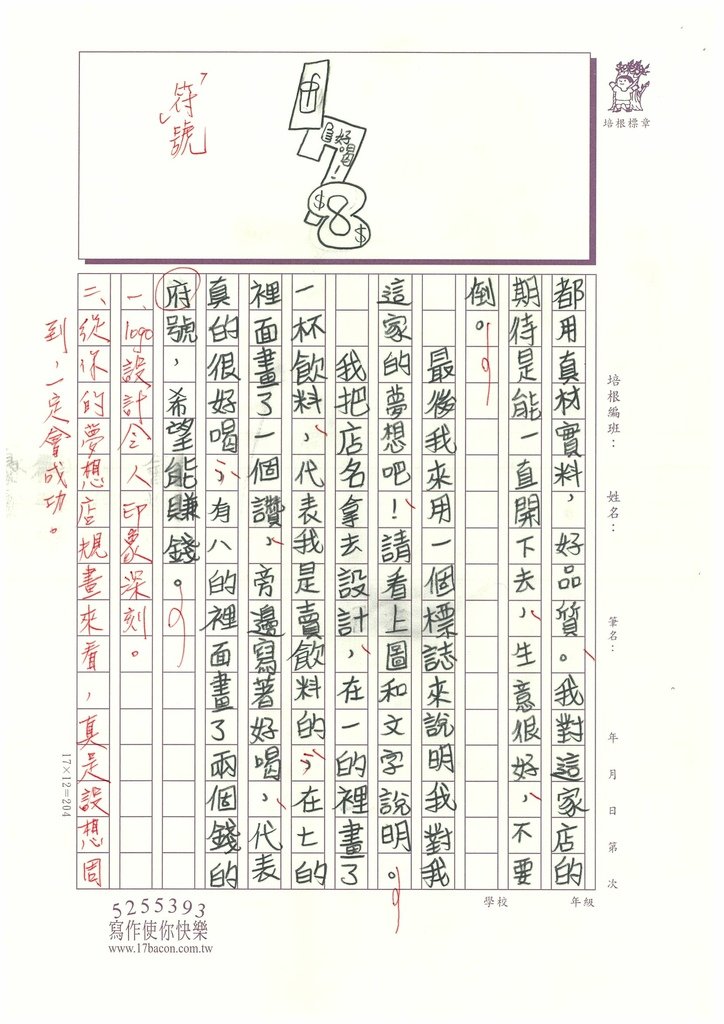 培根標章
「符號
好喝!
$8$
都用真材實料,好品質。我對這家店的
期待是能一直開下去,生意很好,不要
倒。
最後我來用一個標誌來說明我對我
這家的夢想吧!請看上圖和文字說明。
我把店名拿去設計,在一的裡畫了
一杯飲料,代表我是賣飲料的,在七的
裡面畫了一個讚,旁邊寫著好喝,代表
真的很好喝,有八的裡面畫了兩個錢的
府號,希望能賺錢。
一、logo設計令人印象深刻。
二、從你的夢想店規畫來看,真是設想周
到,一定會成功。
培根編班:
姓名:
筆名:
年 月 日 第 次
學校
年級
17×12=204
5255393
寫作使你快樂
www.17bacon.com.tw